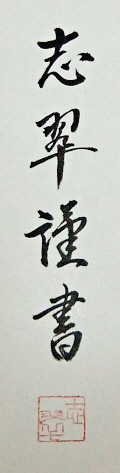 志翠謹書